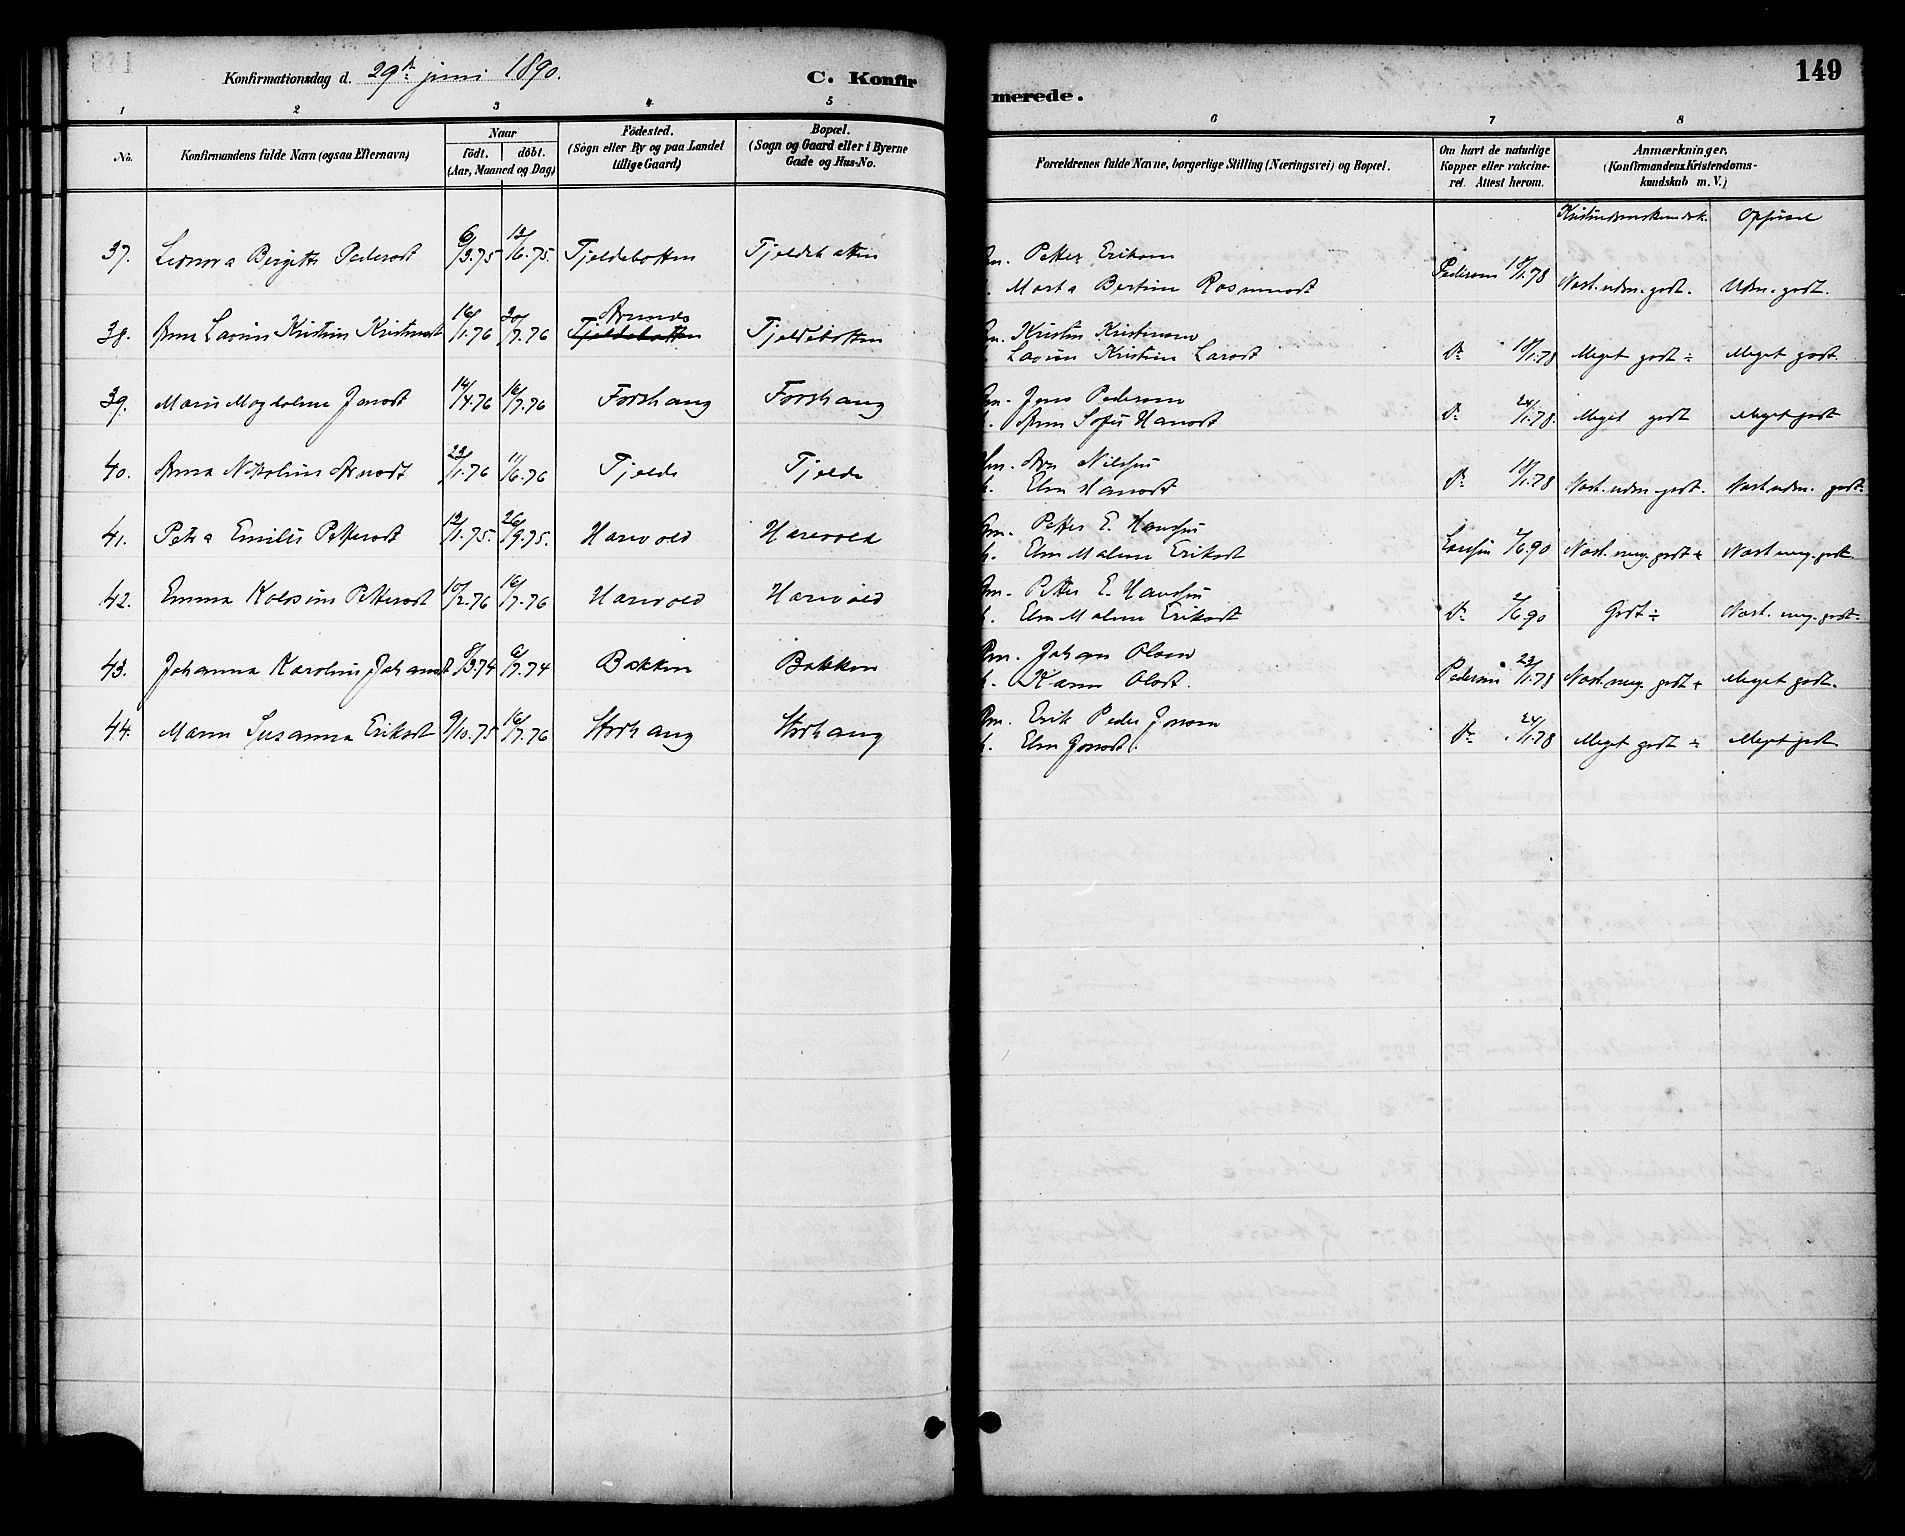 149
Konfirmationsdag d. 29de juni 1890. C. Konfirmerede.
1 2 3 4 5 6 7 8
No. Konfirmandens fulde Navn (ogsaa Efternavn) Naar födt. döbt. (Aar, Maaned og Dag) Födested. (Sogn eller By og paa Landet tillige Gaard) Bopæl. (Sogn og Gaard eller i Byerne Gade og Hus-No.) Forældrenes fulde Navne, borgerlige Stilling (Næringsvei) og Bopæl. Om havt de naturlige Kopper eller vakcineret. Attest herom. Anmærkninger. (Konfirmandens Kristendomskundskab m. V.)
Kristendomskundsk. Opførsel
37. Leonora Bergitte Pedersdt 6/3.75 12/6.75. Tjeldebotten Tjeldebotten Gm. Petter Eriksen Pedersen 18/1.78 Nost. uden. godt. Uden. godt.
Marta Bertine Rasmusdt
38. Anna Lavine Kristine Kristensdt 16/1.76 30/7.76 Tjeldebotten Tjeldebotten Gm. Kristen Kristensen
Lavine Kristine Larsdt Do 18/1.78 Meget godt ÷ Meget godt.
39. Marie Magdalene Jensdt 14/4.76 16/7.76 Forshaug Forshaug Gm. Jens Pedersen
h. Ane Sofie Hansdt Do 24/1.78. Meget godt Meget godt
40. Anna Nikoline Arnsdt 23/1.76 11/6.76 Tjelde Tjelde Gm. Arn Nilssen
h. Elen Hansdt Do 18/1.78 Nost. uden. godt. Nost. uden. godt.
41. Petra Emilie Pettersdt 12/1.75. 26/9.75. Harevold Harevold Gm. Petter E. Hanssen
h. Elen Malene Eriksdt Larssen 2/6.90 Nost. meg. godt ÷ Nost. meg. godt
42. Emma Kolsine Pettersdt 10/2.76 16/7.76 Harevold Harevold Gm. Petter E. Hanssen
h. Elen Malene Eriksdt Do 2/6.90 Godt ÷ Nost. meg. godt.
43. Johanna Karoline Johansdt 8/3.74 6/7.74 Bakken Bakken Pm. Johan Olsen
h. Karen Olsdt. Pedersen 23/1.78 Nost. meg. godt ÷ Meget godt.
44. Maren Susanna Eriksdt 9/10.75 16/7.76 Storhaug Storhaug Pm. Erik Peder Jonsen
h. Elen Jonsdt. Do 24/1.78 Meget godt ÷ Meget godt